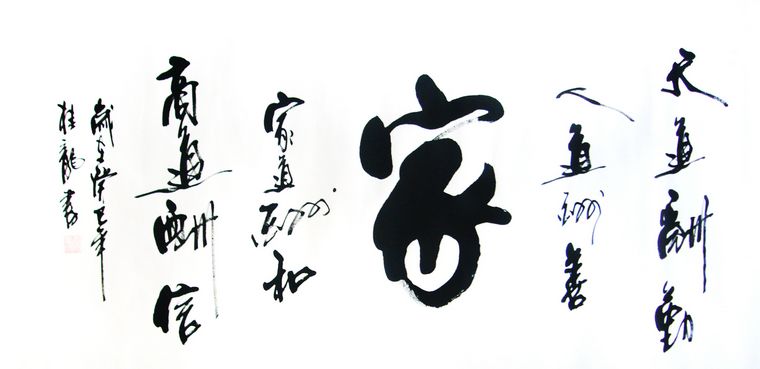 天道酬勤
人道酬善
家
家道酬和
商道酬信
歲在癸巳年
桂龍書